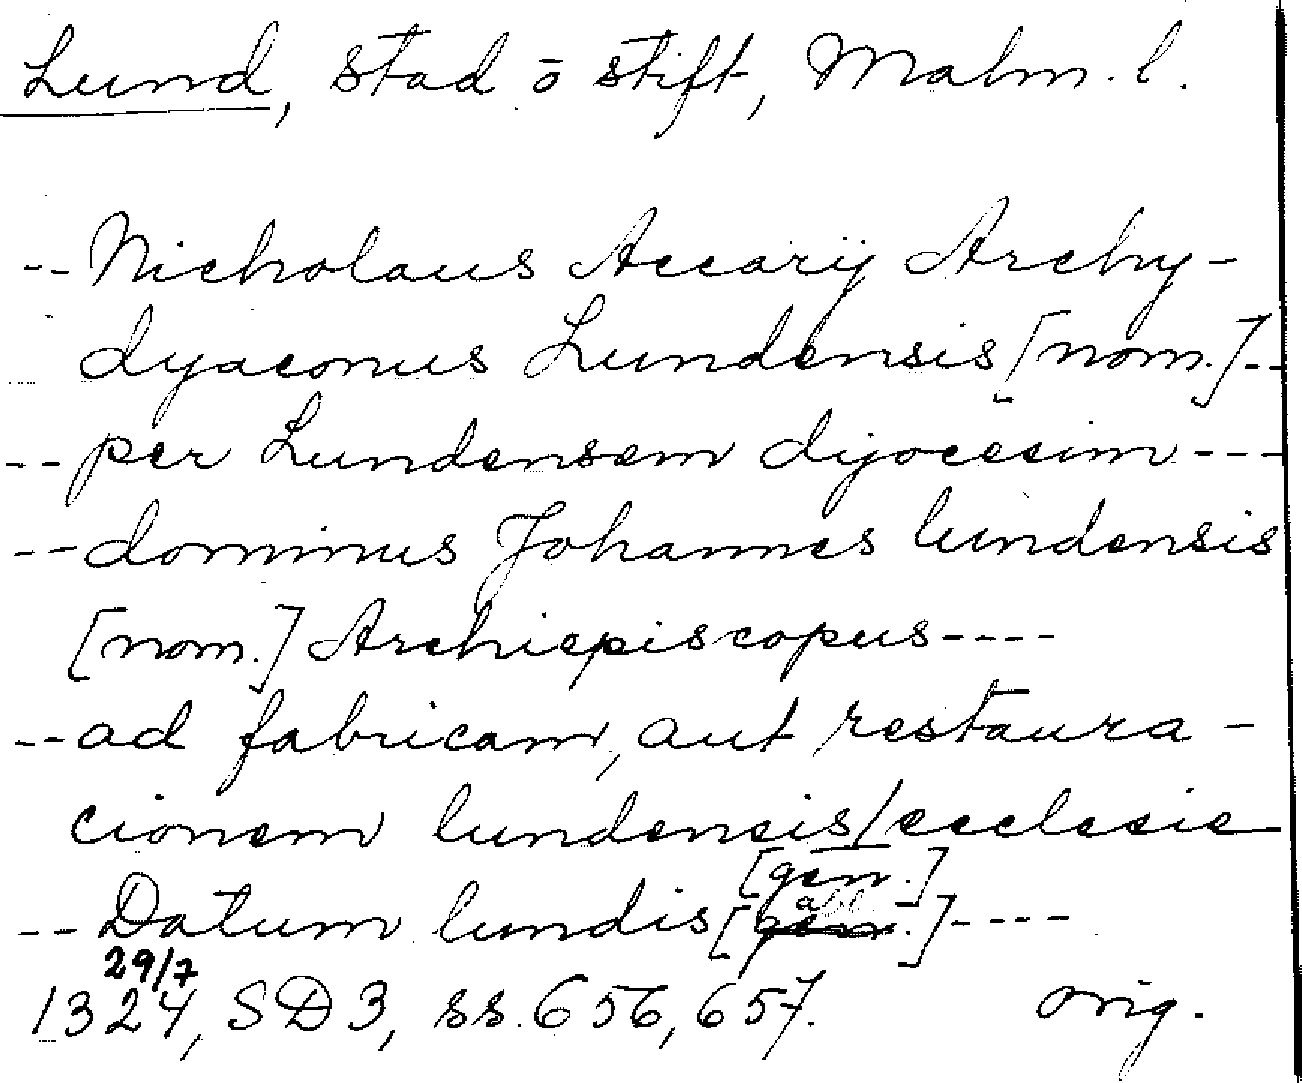 Lund, stad o stift, Malm. l.
-- Nicholaus Accarij Archy-
dyaconus Lundensis [nom.] --
-- per Lundensem dijocesim ---
-- dominus Johannes lundensis
[nom.] Archiepiscopus ----
-- ad fabricam, aut restaura-
cionem lundensis / ecclesie
[gen.]
-- Datum lundis [abl.] ----
29/7
1324, SD 3, ss. 656, 657. orig.